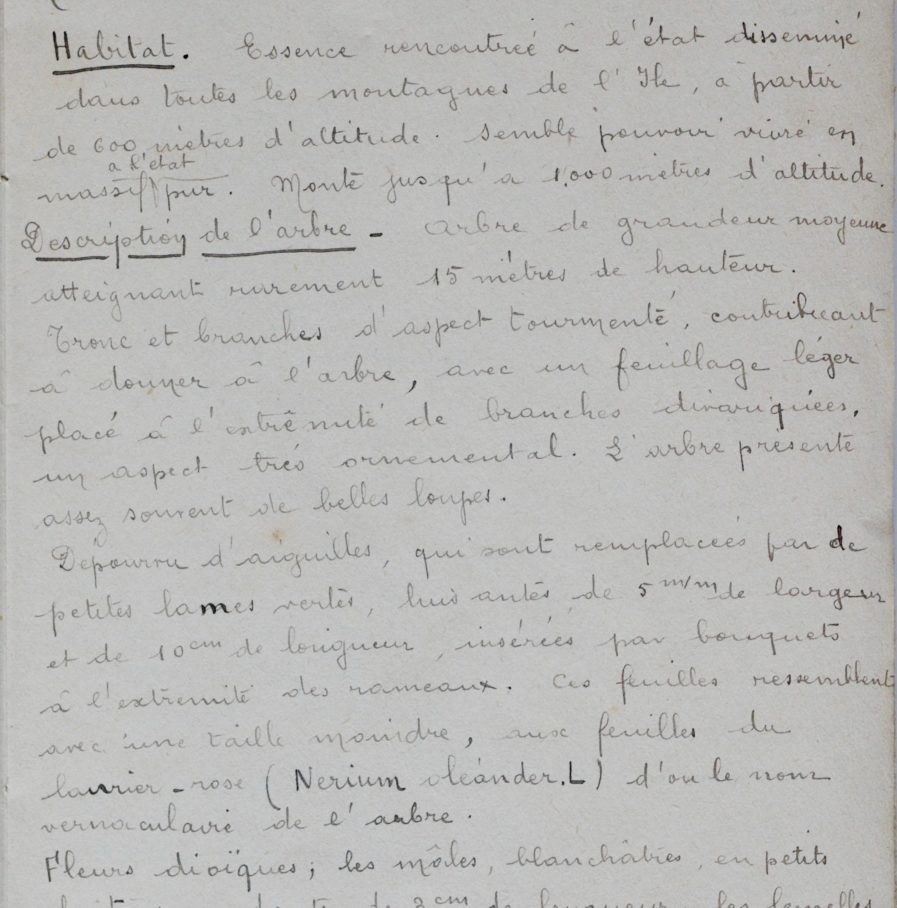 Habitat. Essence rencontrée à l'état disseminé
dans toutes les montagnes de l'Ile, à partir
de 600 mètres d'altitude. Semble pouvoir vivre en
à l'état
massif pur. Monte jusqu'à 1.000 mètres d'altitude.
Description de l'arbre - Arbre de grandeur moyenne
atteignant rarement 15 mètres de hauteur.
Tronc et branches d'aspect tourmenté, contribuant
à donner à l'arbre, avec un feuillage léger
placé à l'extrêmité de branches divariquées,
un aspect très ornemental. L'arbre présente
assez souvent de belles loupes.
Dépourvu d'aiguilles, qui sont remplacées par de
petites lames vertes, luisantes, de 5 m/m de largeur
et de 10 cm de longueur, insérées par bouquets
à l'extremité des rameaux. Ces feuilles ressemblent
avec une taille moindre, aux feuilles du
laurier-rose (Nerium oleander.L) d'ou le nom
vernaculaire de l'arbre.
Fleurs dioïques; les mâles, blanchâtres, en petits
de 3 cm de longueur, les femelles